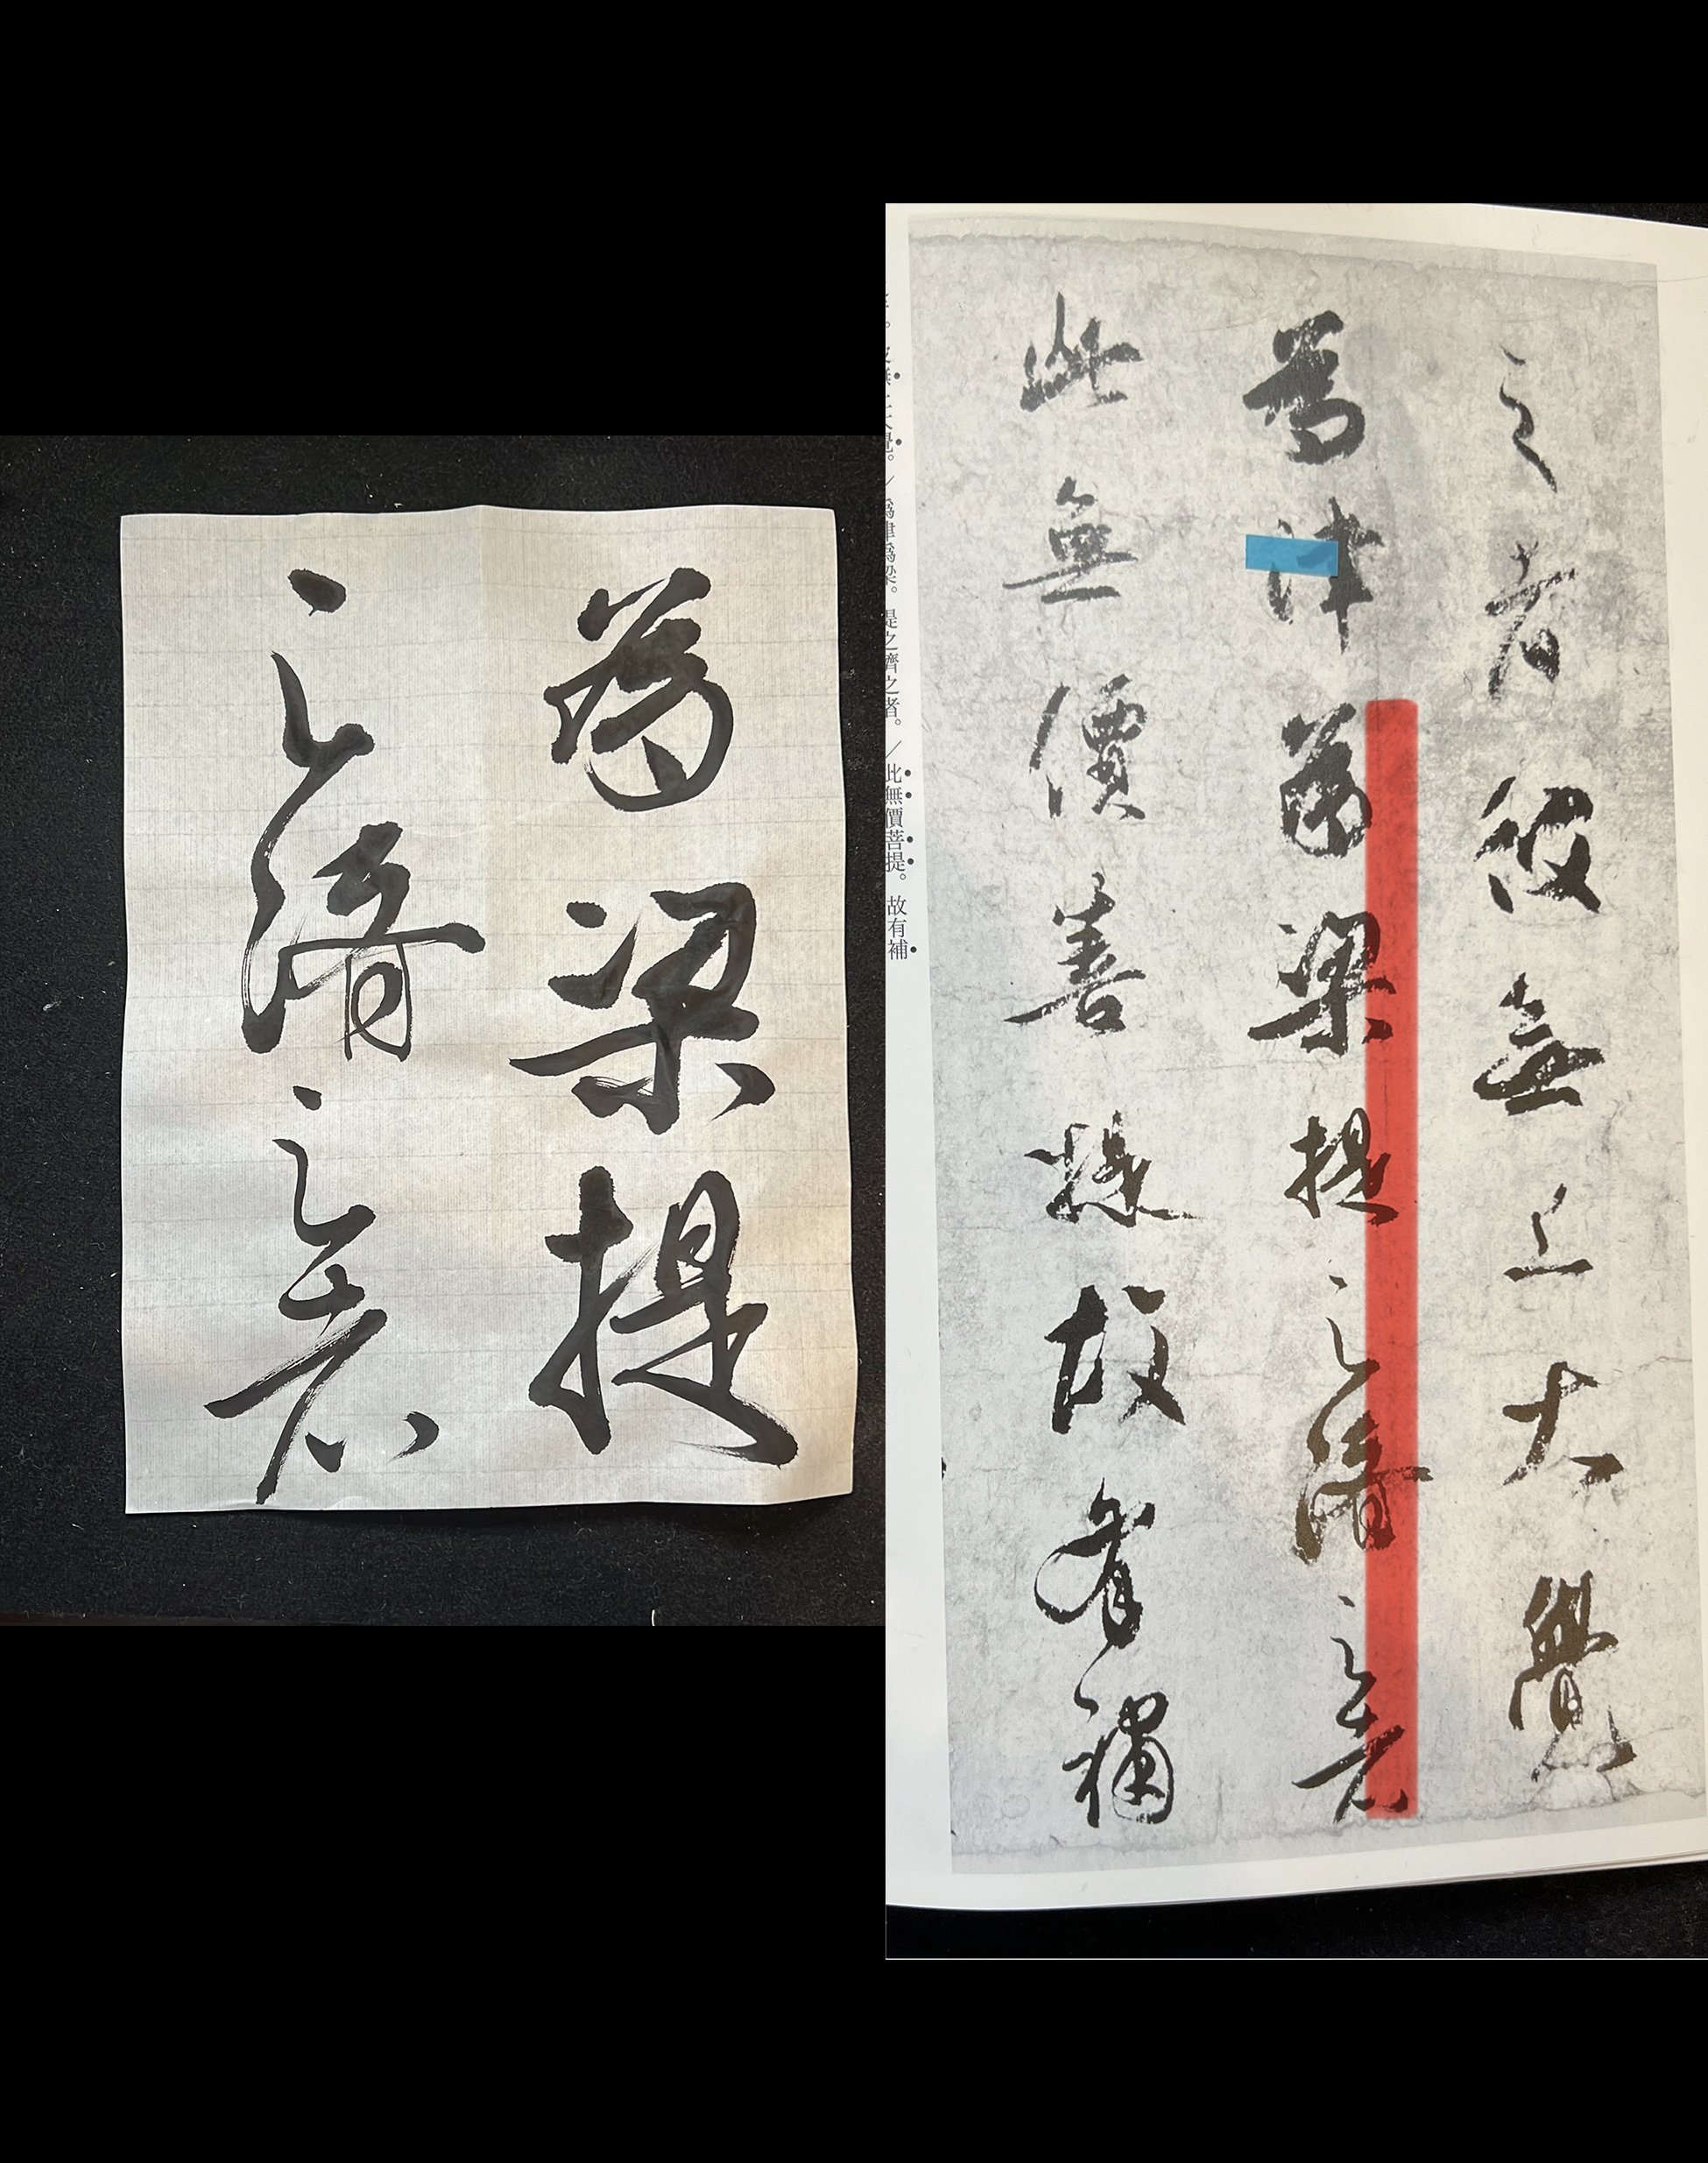 為梁提
之濟之者
之者彼無上大覺
為津為梁提之濟之者
此無價善縁故有補
爲津爲梁。提之濟之者。／此無價菩提。故有補